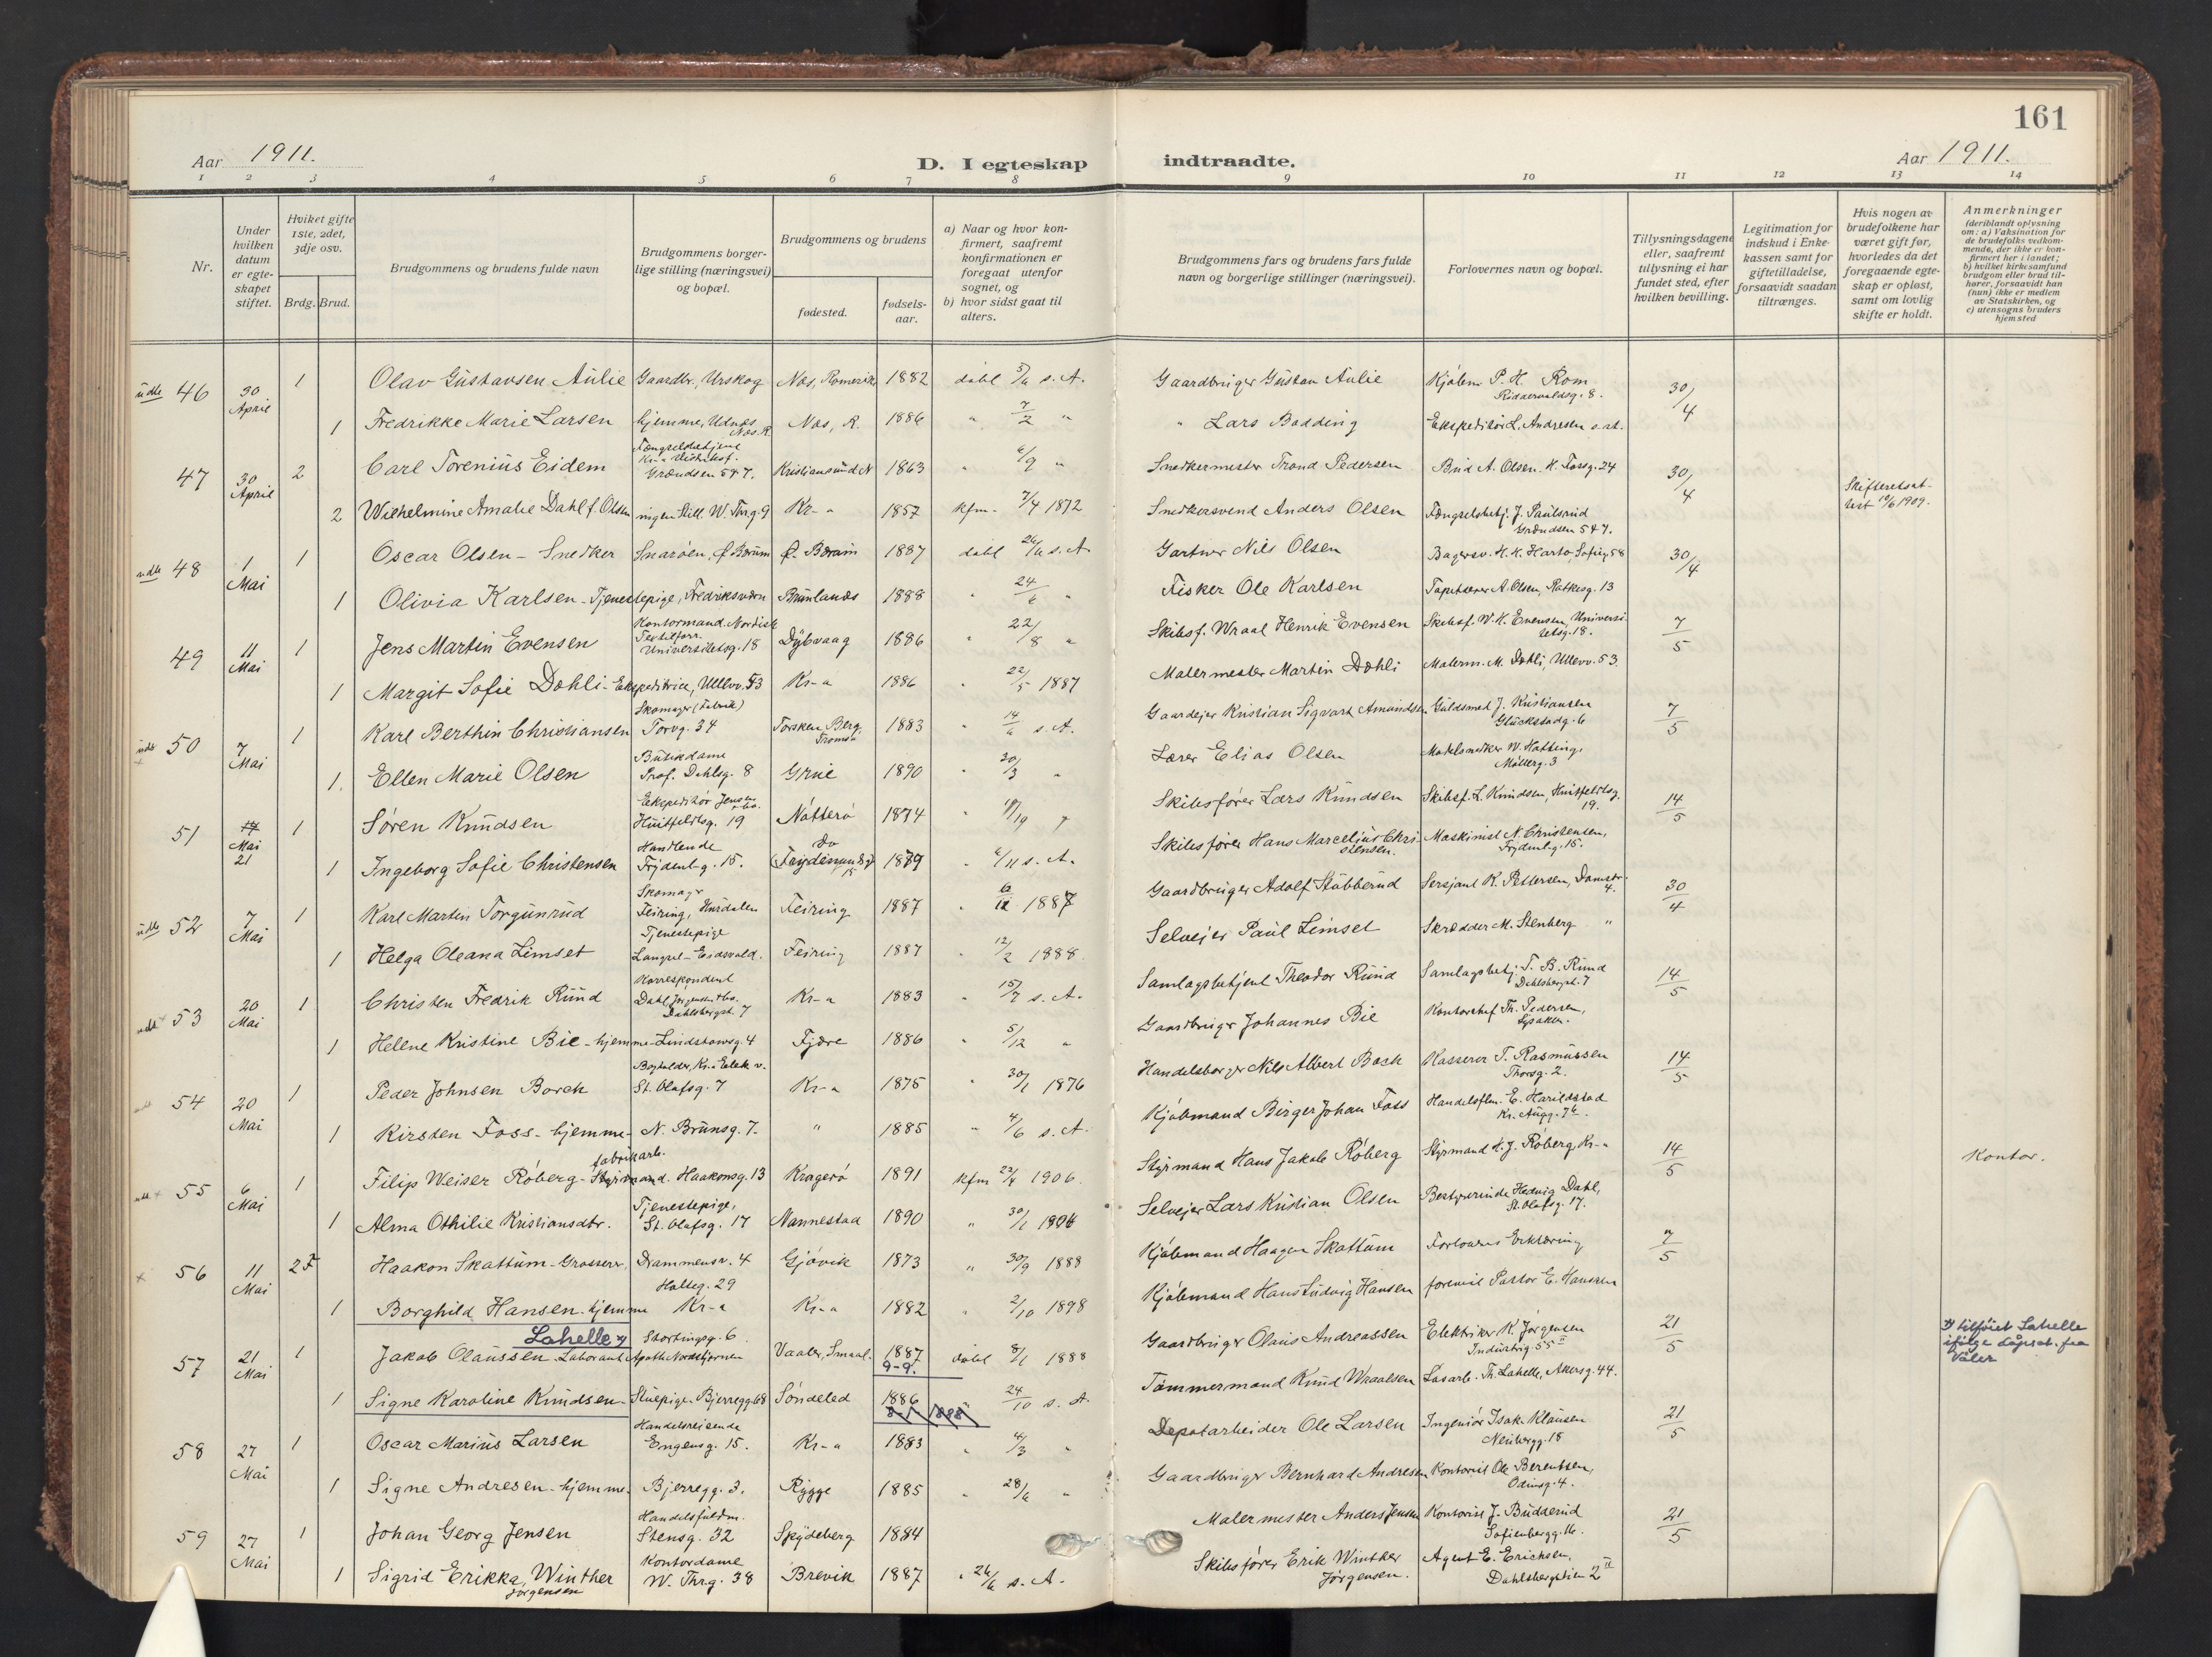 161
Aar 1911.
D. I egteskap indtraadte.
Aar 1911.
1 2 3 4 5 6 7 8 9 10 11 12 13 14
Nr.
Under hvilken datum er egteskapet stiftet.
Hvilket gifte 1ste, 2det, 3dje osv.
Brdg. Brud.
Brudgommens og brudens fulde navn
Brudgommens borgerlige stilling (næringsvei) og bopæl.
Brudgommens og brudens
fødested.
fødselsaar.
a) Naar og hvor konfirmert, saafremt konfirmationen er foregaat utenfor sognet, og
b) hvor sidst gaat til alters.
Brudgommens fars og brudens fars fulde navn og borgerlige stillinger (næringsvei).
Forlovernes navn og bopæl.
Tillysningsdagene eller, saafremt tillysning ei har fundet sted, efter hvilken bevilling.
Legitimation for indskud i Enkekassen samt for giftetilladelse, forsaavidt saadan tiltrænges.
Hvis nogen av brudefolkene har været gift før, hvorledes da det foregaaende egteskap er opløst, samt om lovlig skifte er holdt.
Anmerkninger
(deriblandt oplysning om: a) Vaksination for de brudefolks vedkommende, der ikke er konfirmert her i landet;
b) hvilket kirkesamfund brudgom eller brud tilhører, forsaavidt han (hun) ikke er medlem av Statskirken, og
c) utensogns bruders hjemsted
udb 46 30 April 1 Olav Gustavsen Aulie Gaardbr., Urskog Nes, Romerike 1882 døbt 5/6 s. A. Gaardbruger Gustav Aulie Kjøbm. P. H. Rom Riddervoldsg. 8. 30/4
1 Fredrikke Marie Larsen hjemme, Udnes Nes. R. Nes, R. 1886 " 7/2 " " Lars Bødding Ekspeditør L. Andresen s. st.
47 30 April 2 Carl Torenius Eidem Fængselsbetjent Grændsen 5&7. Kristiansund N 1863 " 6/9 " Snedkermester Trond Pedersen Bud A. Olsen. H. Fossg. 24 30/4
2 Wilhelmine Amalie Dahl f. Olsen ingen Still. W. Thrg. 9 Kr-a 1857 kfm. 7/4 1872 Snedkersvend Anders Olsen Fængselsbetj. J. Paulsrud Grændsen 5&7. Skifteretsattest 10/6 1909.
udb 48 1 Mai 1 Oscar Olsen - Snedker Snarøen, Ø. Bærum Ø. Bærum 1887 døbt 26/6 s. A. Gartner Nils Olsen Bagersv. H. K. Harto, Sofieg. 58 30/4
1 Olivia Karlsen - Tjenestepige, Fredriksværn Brunlanes 1888 " 24/6 " Fisker Ole Karlsen Tapetserer A. Olsen, Ratkesg. 13
49 11 Mai 1 Jens Martin Evensen Kontormand. Nordisk Textilforr. Universitetsg. 18 Dybvaag 1886 " 22/8 " Skibsf. Wraal Henrik Evensen Skibsf. W. H. Evensen, Universitetsg. 18. 7/5
1 Margit Sofie Dæhli - Ekspeditrice, Ullevv. 53 Kr-a 1886 " 22/5 1887 Malermester Martin Dæhli Malerm. M. Dæhli, Ullevv. 53.
50 7 Mai 1 Karl Berthin Christiansen Skomager (fabrik) Torvg. 34 Torsken, Berg, Tromsø 1883 " 14/6 s. A. Gaardejer Kristian Sigvart Amundsen Guldsmed J. Kristiansen Glückstadg. 6 7/5
1. Ellen Marie Olsen Butikdame Prof. Dahlsg. 8 Grue 1890 " 20/3 " Lærer Elias Olsen Møbelsnedker W. Hatting, Møllerg. 3
51 14 Mai 21 1 Søren Knudsen Ekspeditør Jensen & Co. Huitfeldtsg. 19 Nøtterø 1874 Skibsfører Lars Knudsen Skibsf. L. Knudsen, Huitfeldtsg. 19. 14/5
1 Ingeborg Sofie Christensen Handlende Frydenl.g. 15. do 1879 " 6/11 s. A. Skibsfører Hans Marcelius Christensen. Maskinist N. Christensen, Frydenl.g. 15.
udb 52 7 Mai 1 Karl Martin Torgunrud Skomager Feiring, Hurdalen Feiring 1887 " 6/12 1887 Gaardbruger Adolf Stubberud Sersjant K. Pettersen, Damstr. 4. 30/4
1 Helga Oleana Limset Tjenestepige Langset - Eidsvold. Feiring 1887 " 12/2 1888 Selveier Paul Limset Skrædder M. Stenberg "
udb 53 20 Mai 1 Christen Fredrik Rund Korrespondent Dahl, Jørgensen & Co. Dahlsbergst. 7 Kr-a 1883 " 15/7 s. A. Samlagsbetjent Theodor Rund Samlagsbetj. T. B. Rund Dahlsbergst. 7 14/5
1 Helene Kristine Bie - hjemme - Lindstowsg. 4 Fjære 1886 " 5/12 " Gaardbruger Johannes Bie Kontorchef Th. Pedersen, Lysaker.
54 20 Mai 1 Peder Johnsen Borch Bogholder, Kr-a Elek. v. St. Olafsg. 7 Kr-a 1875 " 30/1 1876 Handelsborger Nils Albert Bock Kasserer T. Rasmussen Thorsg. 2. 14/5
1 Kirsten Foss - hjemme - N. Brunsg. 7. " 1885 " 4/6 s. A. Kjøbmand Birger Johan Foss Handelsflm. E. Harildstad Kr. Augg. 7b.
udb 55 6 Mai 1 Filip Weiser Røberg - Styrmand fabrikarb. Haakonsg. 13 Kragerø 1891 kfm 22/4 1906. Styrmand Hans Jakob Røberg Styrmand H. J. Røberg, Kr-a 14/5 Kontor.
1 Alma Othilie Kristiansdtr. Tjenestepige, St. Olafsg. 17 Nannestad 1890 " 30/1 1906 Selveier Lars Kristian Olsen Bestyrerinde Hedvig Dahl, St. Olafsg. 17.
x 56 11 Mai 2 F Haakon Skattum - Grosserer, Drammensv. 4 Gjøvik 1873 " 30/9 1888 Kjøbmand Haagen Skattum Forloveres Erklæring 7/5
1 Borghild Hansen - hjemme Holteg. 29 Kr-a Kr-a 1882 " 2/10 1898 Kjøbmand Hans Ludvig Hansen foreviist Pastor E. Hanssen
57 21 Mai 1 Jakob Olaussen Lahelle x) - Laborant Stortingsg. 6 Apoth. Nordstjernen Vaaler, Smaal. 1887 9-9. døbt 8/1 1888 Gaardbruger Olaus Andreassen Elektriker K. Jørgensen Industrig. 55 II 21/5 x) tilføiet Lahelle ifølge dåpsat. fra Våler
1 Signe Karoline Knudsen - Stuepige. Bjerregg. 68 Søndeled 1886 " 24/10 s. A. Tømmermand Knud Wraalsen Løsarb. Th. Lahelle, Akersg. 44.
58 27 Mai 1 Oscar Marius Larsen Handelsreisende Engensg. 15. Kr-a 1883 " 4/3 " Depotarbeider Ole Larsen Ingeniør Isak Klausen Neubergg. 18 21/5
1 Signe Andresen - hjemme - Bjerregg. 3. Rygge 1885 " 28/6 " Gaardbruger Bernhard Andresen Kontorist Ole Berentsen, Odinsg. 4.
59 27 Mai 1 Johan Georg Jensen Handelsfuldm. Stensg. 32 Spydeberg 1884 Malermester Anders Jensen Kontorist J. Budderud Sofienbergg. 16. 21/5
1 Sigrid Erikka Winther Jørgensen Kontordame W. Thrg. 38 Brevik 1887 " 26/6 s. A. Skibsfører Erik Winther Jørgensen. Agent E. Erichsen, Dahlsbergstien 2 II